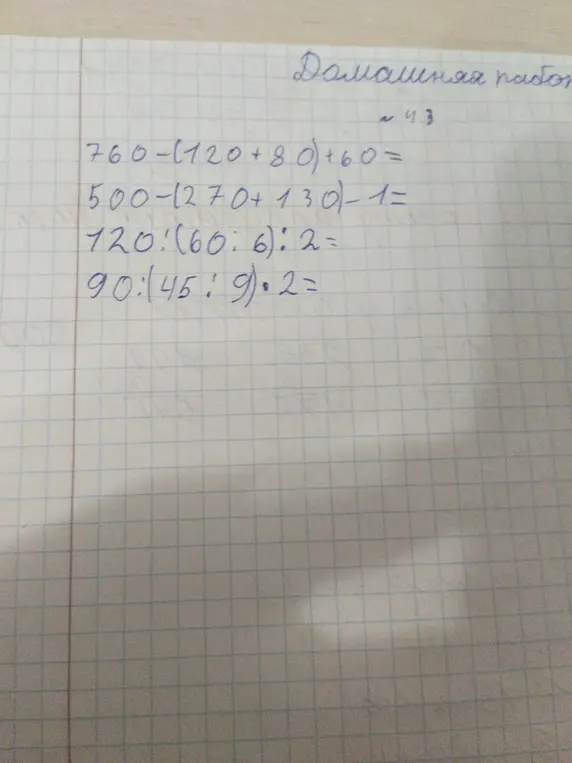 Домашняя работ
~ 43
760-(120+80)+60=
500-(270+130)-1=
120:(60:6):2=
90:(45:9)·2=